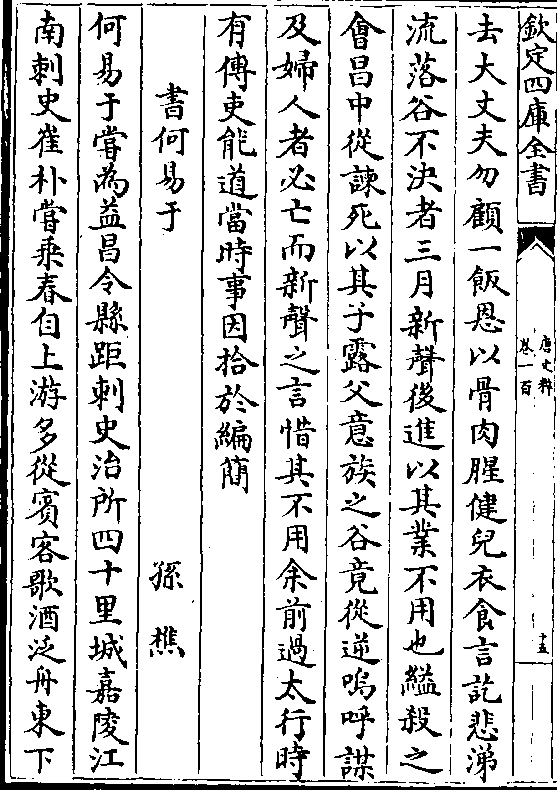 欽定四庫全書
唐文粹
卷一百
十五
去大丈夫勿顧一飯恩以骨肉腥健兒衣食言訖悲涕
流落谷不決者三月新聲後進以其業不用也縊殺之
會昌中從諫死以其子露父意族之谷竟從逆嗚呼謀
及婦人者必亡而新聲之言惜其不用余前過太行時
有傳吏能道當時事因拾於編簡
書何易于
孫樵
何易于嘗為益昌令縣距刺史治所四十里城嘉陵江
南刺史崔朴嘗乘春自上游多從賓客歌酒泛舟東下